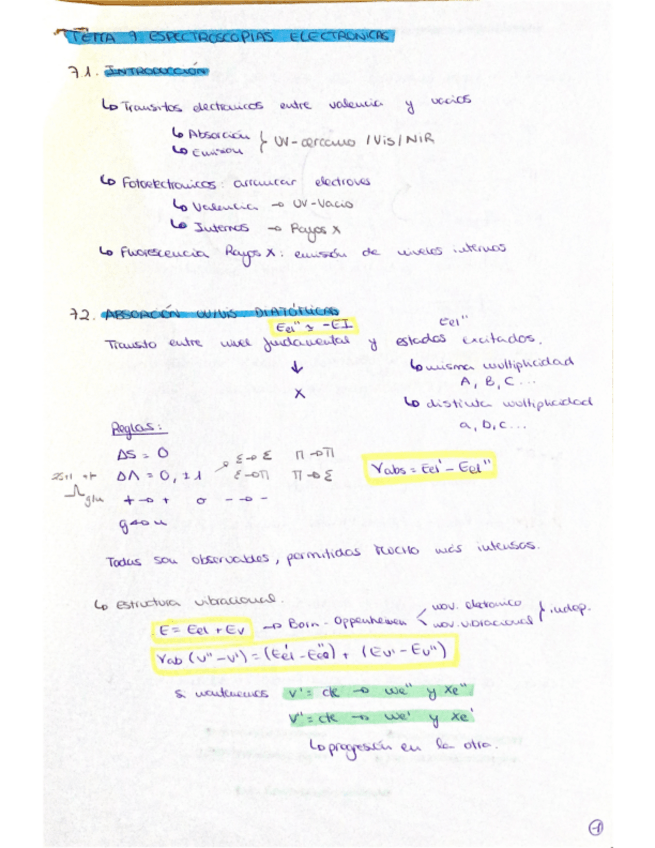 TEMA 7 ESPECTROSCOPIAS ELECTRONICAS
7.1. INTRODUCCIÓN
↳ Transitos electronicos entre valencia y vacios
↳ Absorción
↳ Emision } UV-cercano / Vis / NIR
↳ Fotoelectronicos: arrancar electrones
↳ Valencia → UV-Vacio
↳ Internos → Rayos X
↳ Fluorescencia Rayos X: emisión de niveles internos
7.2. ABSORCIÓN UV/VIS DIATÓMICAS
Eel'' ≈ -EI Eel''
Transito entre nivel fundamental y estados excitados.
↓ ↳ misma multiplicidad
X A, B, C...
↳ distinta multiplicidad
a, b, c...
Reglas:
ΔS = 0 Σ→Σ Π→Π
ΔΛ = 0, ±1 Σ→Π Π→Σ νabs = Eel' - Eel''
2S+1 +/-
Λ g/u + → + o - → -
g↔u
Todas son observables, permitidas mucho más intensas.
↳ Estructura vibracional.
E = Eel + Ev → Born-Oppenheimer < mov. eletronico
mov. vibracional } indep.
νab (v''-v') = (Eel' - Eel'') + (Ev' - Ev'')
si mantenemos v' = cte → we'' y xe''
v'' = cte → we' y xe'
↳ progresión en la otra.
1